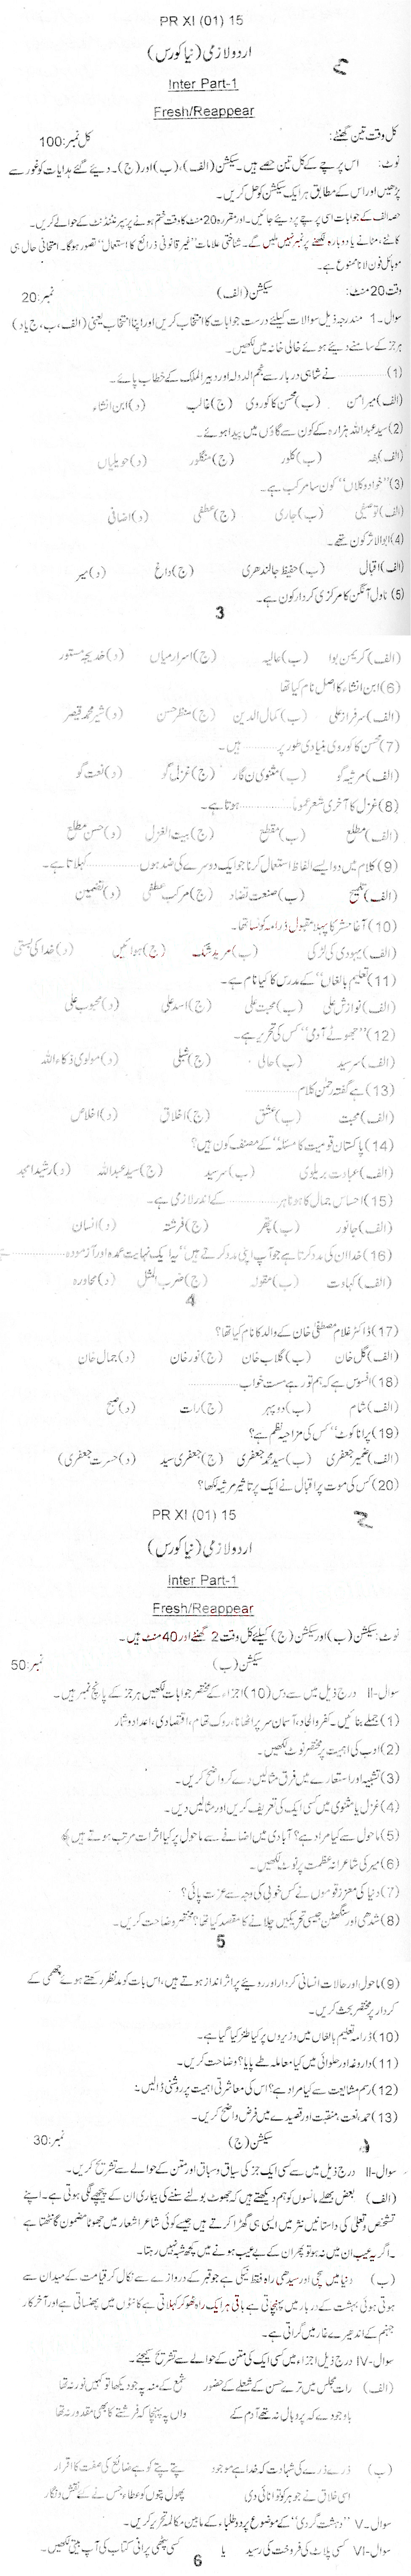 PR XI (01) 15
اردو لازمی (نیا کورس)
Inter Part-1
Fresh/Reappear
کل وقت تین گھنٹے: کل نمبر: 100
نوٹ: اس پرچے کے کل تین حصے ہیں۔ سیکشن (الف)، (ب) اور (ج)۔ دیے گئے ہدایات کو غور سے
پڑھیں اور اس کے مطابق ہر ایک سیکشن کو حل کریں۔
حصہ الف کے جوابات اسی پرچے پر دیئے جائیں۔ اور مقررہ 20 منٹ کا وقت ختم ہونے پر سپرنٹنڈنٹ کے حوالے کریں۔
کاٹنے، مٹانے یا دوبارہ لکھنے پر نمبر نہیں ملیں گے۔ شناختی علامات "غیر قانونی ذرائع کا استعمال" تصور ہوگا۔ امتحانی حال ہی
موبائل فون لانا ممنوع ہے۔
وقت 20 منٹ: سیکشن (الف) نمبر: 20
سوال۔1 مندرجہ ذیل سوالات کیلئے درست جوابات کا انتخاب کریں اور اپنا انتخاب یعنی (الف، ب، ج یا د)
ہر جز کے سامنے دیئے ہوئے خالی خانہ میں لکھیں۔
(1) ............ نے شاہی دربار سے نجم الدولہ اور دبیر الملک کے خطاب پائے۔
(الف) میر امن (ب) محسن کاکوروی (ج) غالب (د) ابن انشاء
(2) سید عبداللہ ہزارہ کے کون سے گاؤں میں پیدا ہوئے۔
(الف) بفہ (ب) کلور (ج) منگلور (د) حویلیاں
(3) "خوادہ کلاں" کون سا مرکب ہے۔
(الف) توصیفی (ب) جاری (ج) عطفی (د) اضافی
(4) ابوالاثر کون تھے۔
(الف) اقبال (ب) حفیظ جالندھری (ج) داغ (د) میر
(5) ناول آنگن کا مرکزی کردار کون ہے۔
3
(الف) کریمن بوا (ب) عالیہ (ج) اسرار میاں (د) خدیجہ مستور
(6) ابن انشاء کا اصل نام کیا تھا
(الف) سرفراز علی (ب) کمال الدین (ج) منظر حسن (د) شیر محمد قیصر
(7) محسن کاکوروی بنیادی طور پر ............ ہیں۔
(الف) مرثیہ گو (ب) مثنوی نگار (ج) غزل گو (د) نعت گو
(8) غزل کا آخری شعر عموماً ............ ہوتا ہے۔
(الف) مطلع (ب) مقطع (ج) بیت الغزل (د) حسن مطلع
(9) کلام میں دو ایسے الفاظ استعمال کرنا جو ایک دوسرے کی ضد ہوں ............ کہلاتا ہے۔
(الف) تلمیح (ب) صنعت تضاد (ج) مرکب عطفی (د) تضمین
(10) آغا حشر کا پہلا مقبول ڈرامہ کونسا تھا۔
(الف) یہودی کی لڑکی (ب) مرید شک (ج) ہوائیں (د) خدا کی بستی
(11) "تعلیم بالغاں" کے مدرس کا کیا نام ہے۔
(الف) نوازش علی (ب) محبت علی (ج) اسد علی (د) محبوب علی
(12) "جھوٹے آدمی" کس کی تحریر ہے۔
(الف) سرسید (ب) حالی (ج) شبلی (د) مولوی ذکاء اللہ
(13) ہے گفتہ رحمٰن کلام ............
(الف) محبت (ب) عشق (ج) اخلاق (د) اخلاص
(14) "پاکستان قومیت کا مسئلہ" کے مصنف کون ہیں؟
(الف) عبادت بریلوی (ب) سرسید (ج) سید عبداللہ (د) رشید امجد
(15) احساس جمال کا ہونا ہر ............ کے اندر لازمی ہے۔
(الف) جانور (ب) پتھر (ج) فرشتہ (د) انسان
(16) "خدا ان کی مدد کرتا ہے جو آپ اپنی مدد کرتے ہیں" یہ ایک نہایت عمدہ اور آزمودہ ............ ہے
(الف) کہاوت (ب) مقولہ (ج) ضرب المثل (د) محاورہ
4
(17) ڈاکٹر غلام مصطفیٰ خان کے والد کا نام کیا تھا؟
(الف) گل خان (ب) گلاب خان (ج) نور خان (د) جمال خان
(18) افسوس ہے کہ ہم تو رہے مست خواب ............
(الف) شام (ب) دوپہر (ج) رات (د) صبح
(19) "پرانا کوٹ" کس کی مزاحیہ نظم ہے؟
(الف) ضمیر جعفری (ب) سید محمد جعفری (ج) جعفری سید (د) حسرت جعفری)
(20) کس کی موت پر اقبال نے ایک پر تاثیر مرثیہ لکھا؟
PR XI (01) 15
اردو لازمی (نیا کورس)
Inter Part-1
Fresh/Reappear
نوٹ: سیکشن (ب) اور سیکشن (ج) کیلئے کل وقت 2 گھنٹے اور 40 منٹ ہیں۔
سیکشن (ب) نمبر: 50
سوال-II درج ذیل میں سے دس (10) اجزاء کے مختصر جوابات لکھیں ہر جز کے پانچ نمبر ہیں۔
(1) جملے بنائیں۔ کفر و الحاد، آسمان سر پر اٹھانا، روک تھام، اقتصادی، اعداد و شمار
(2) ادب کی اہمیت پر مختصر نوٹ لکھیں۔
(3) تشبیہ اور استعارے میں فرق مثالیں دے کر واضح کریں۔
(4) غزل یا مثنوی میں کسی ایک کی تعریف کریں اور مثالیں دیں۔
(5) ماحول سے کیا مراد ہے؟ آبادی میں اضافے سے ماحول پر کیا اثرات مرتب ہوتے ہیں؟
(6) میر کی شاعرانہ عظمت پر نوٹ لکھیں۔
(7) دنیا کی معزز قوموں نے کس خوبی کی وجہ سے عزت پائی؟
(8) شدھی اور سنگھٹن جیسی تحریکیں چلانے کا مقصد کیا تھا؟ مختصر وضاحت کریں۔
5
(9) ماحول اور حالات انسانی کردار اور رویئے پر اثر انداز ہوتے ہیں، اس بات کو مد نظر رکھتے ہوئے چھمی کے
کردار پر مختصر بحث کریں۔
(10) ڈرامہ تعلیم بالغاں میں وزیروں پر کیا طنز کیا گیا ہے۔
(11) داروغہ اور حلوائی میں کیا معاملہ طے پایا؟ وضاحت کریں۔
(12) رسم مشایعت سے کیا مراد ہے؟ اس کی معاشرتی اہمیت پر روشنی ڈالیں۔
(13) حمد، نعت، منقبت اور قصیدے میں فرق واضح کریں۔
سیکشن (ج) نمبر: 30
سوال-II درج ذیل میں سے کسی ایک جز کی سیاق و سباق اور متن کے حوالے سے تشریح کریں۔
(الف) بعض بھلے مانسوں کو ہم دیکھتے ہیں کہ جھوٹ بولنے سننے کی بیماری ان کے پیچھے لگی ہوتی ہے۔ اپنے
تشخص و تعلی کی داستانیں نثر میں ایسی ہی گھڑا کرتے ہیں جیسے کوئی شاعر اشعار میں جھوٹا مضمون گانٹھتا ہے
۔ اگر یہ عیب ان میں نہ ہو تو پھر ان کے بے عیب ہونے میں کچھ شبہ نہیں رہتا۔
(ب) دنیا میں سچی اور سیدھی راہ فقط نیکی ہے جو قبر کے دروازے سے نکال کر قیامت کے میدان سے
ہوتی ہوئی بہشت کے دربار میں پہنچاتی ہے باقی ہر ایک راہ ٹھوکر کھلاتی ہے کانٹوں میں پھنساتی ہے اور آخر کار
جہنم کے اندھیرے غار میں گراتی ہے۔
سوال-IV درج ذیل اجزاء میں کسی ایک کی متن کے حوالے سے تشریح کیجئے۔
(الف) رات مجلس میں ترے حسن کے شعلے کے حضور شمع کے منہ پہ جو دیکھا تو کہیں نور نہ تھا
باوجودے کہ پر و بال نہ تھے آدم کے واں پہ پہنچا کہ فرشتے کا بھی مقدور نہ تھا
(ب) ذرے ذرے کی شہادت کہ خدا ہے موجود پتے پتے کو ہے صانع کی صفت کا اقرار
اسی خلاق نے جوہر کو توانائی دی پھول پتوں کو عطا جس نے کئے نقش و نگار
سوال-V "دہشت گردی" کے موضوع پر دو طلباء کے مابین مکالمہ تحریر کریں۔
سوال-VI کسی پلاٹ کی فروخت کی رسید یا کسی پھٹی پرانی کتاب کی آپ بیتی لکھیں۔
6